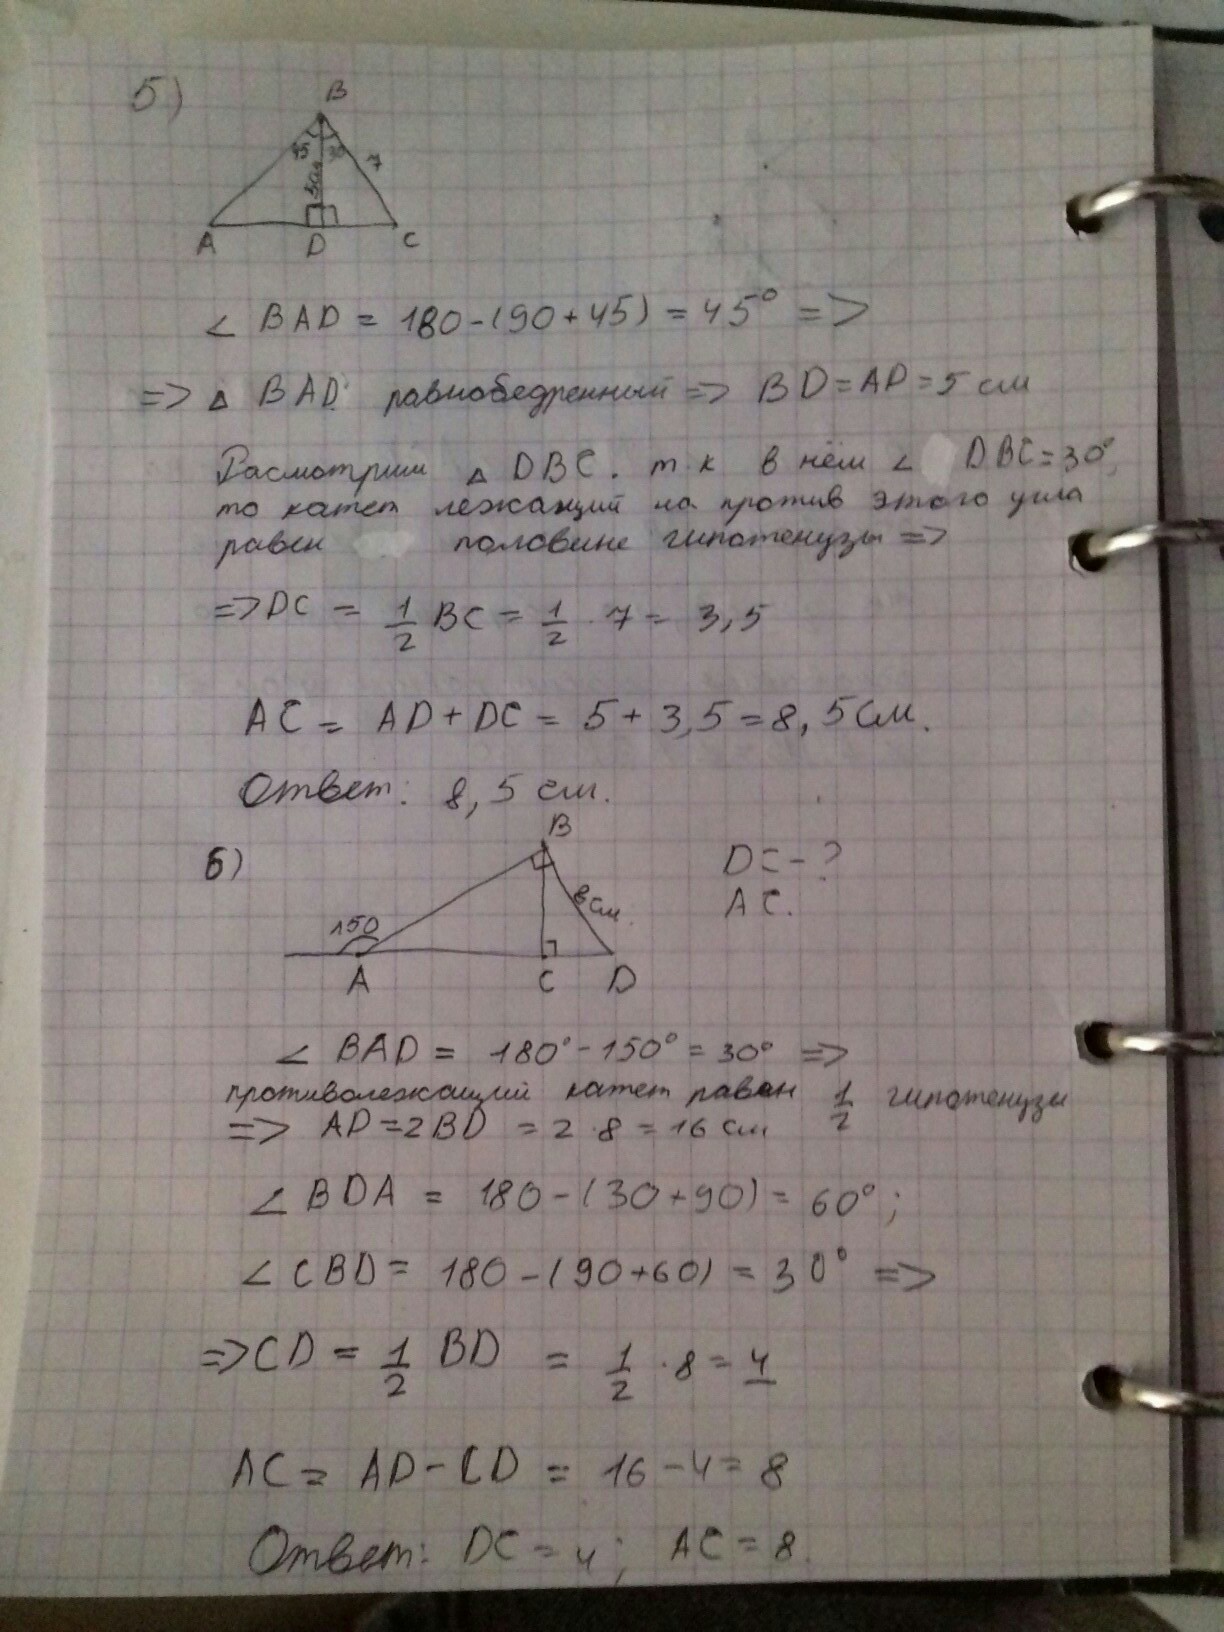 5)
B
45 30 7
5см
A D C
∠ BAD = 180-(90+45) = 45° =>
=> △ BAD равнобедренный => BD=AD=5 см
Расмотрим △ DBC. т.к в нём ∠ DBC=30°,
то катет лежащий на против этого угла
равен половине гипотенузы =>
=> DC = 1/2 BC = 1/2 · 7 = 3,5
AC = AD+DC = 5+3,5=8,5см.
Ответ: 8,5 см.
6)
B
DC-?
AC.
8см
150
A C D
∠ BAD = 180°-150°=30° =>
противолежащий катет равен 1/2 гипотенузы
=> AD=2BD = 2·8=16 см
∠ BDA = 180-(30+90)= 60°;
∠ CBD= 180-(90+60) = 30° =>
=> CD = 1/2 BD = 1/2 ·8=4
AC = AD-CD = 16-4=8
Ответ: DC=4; AC=8.